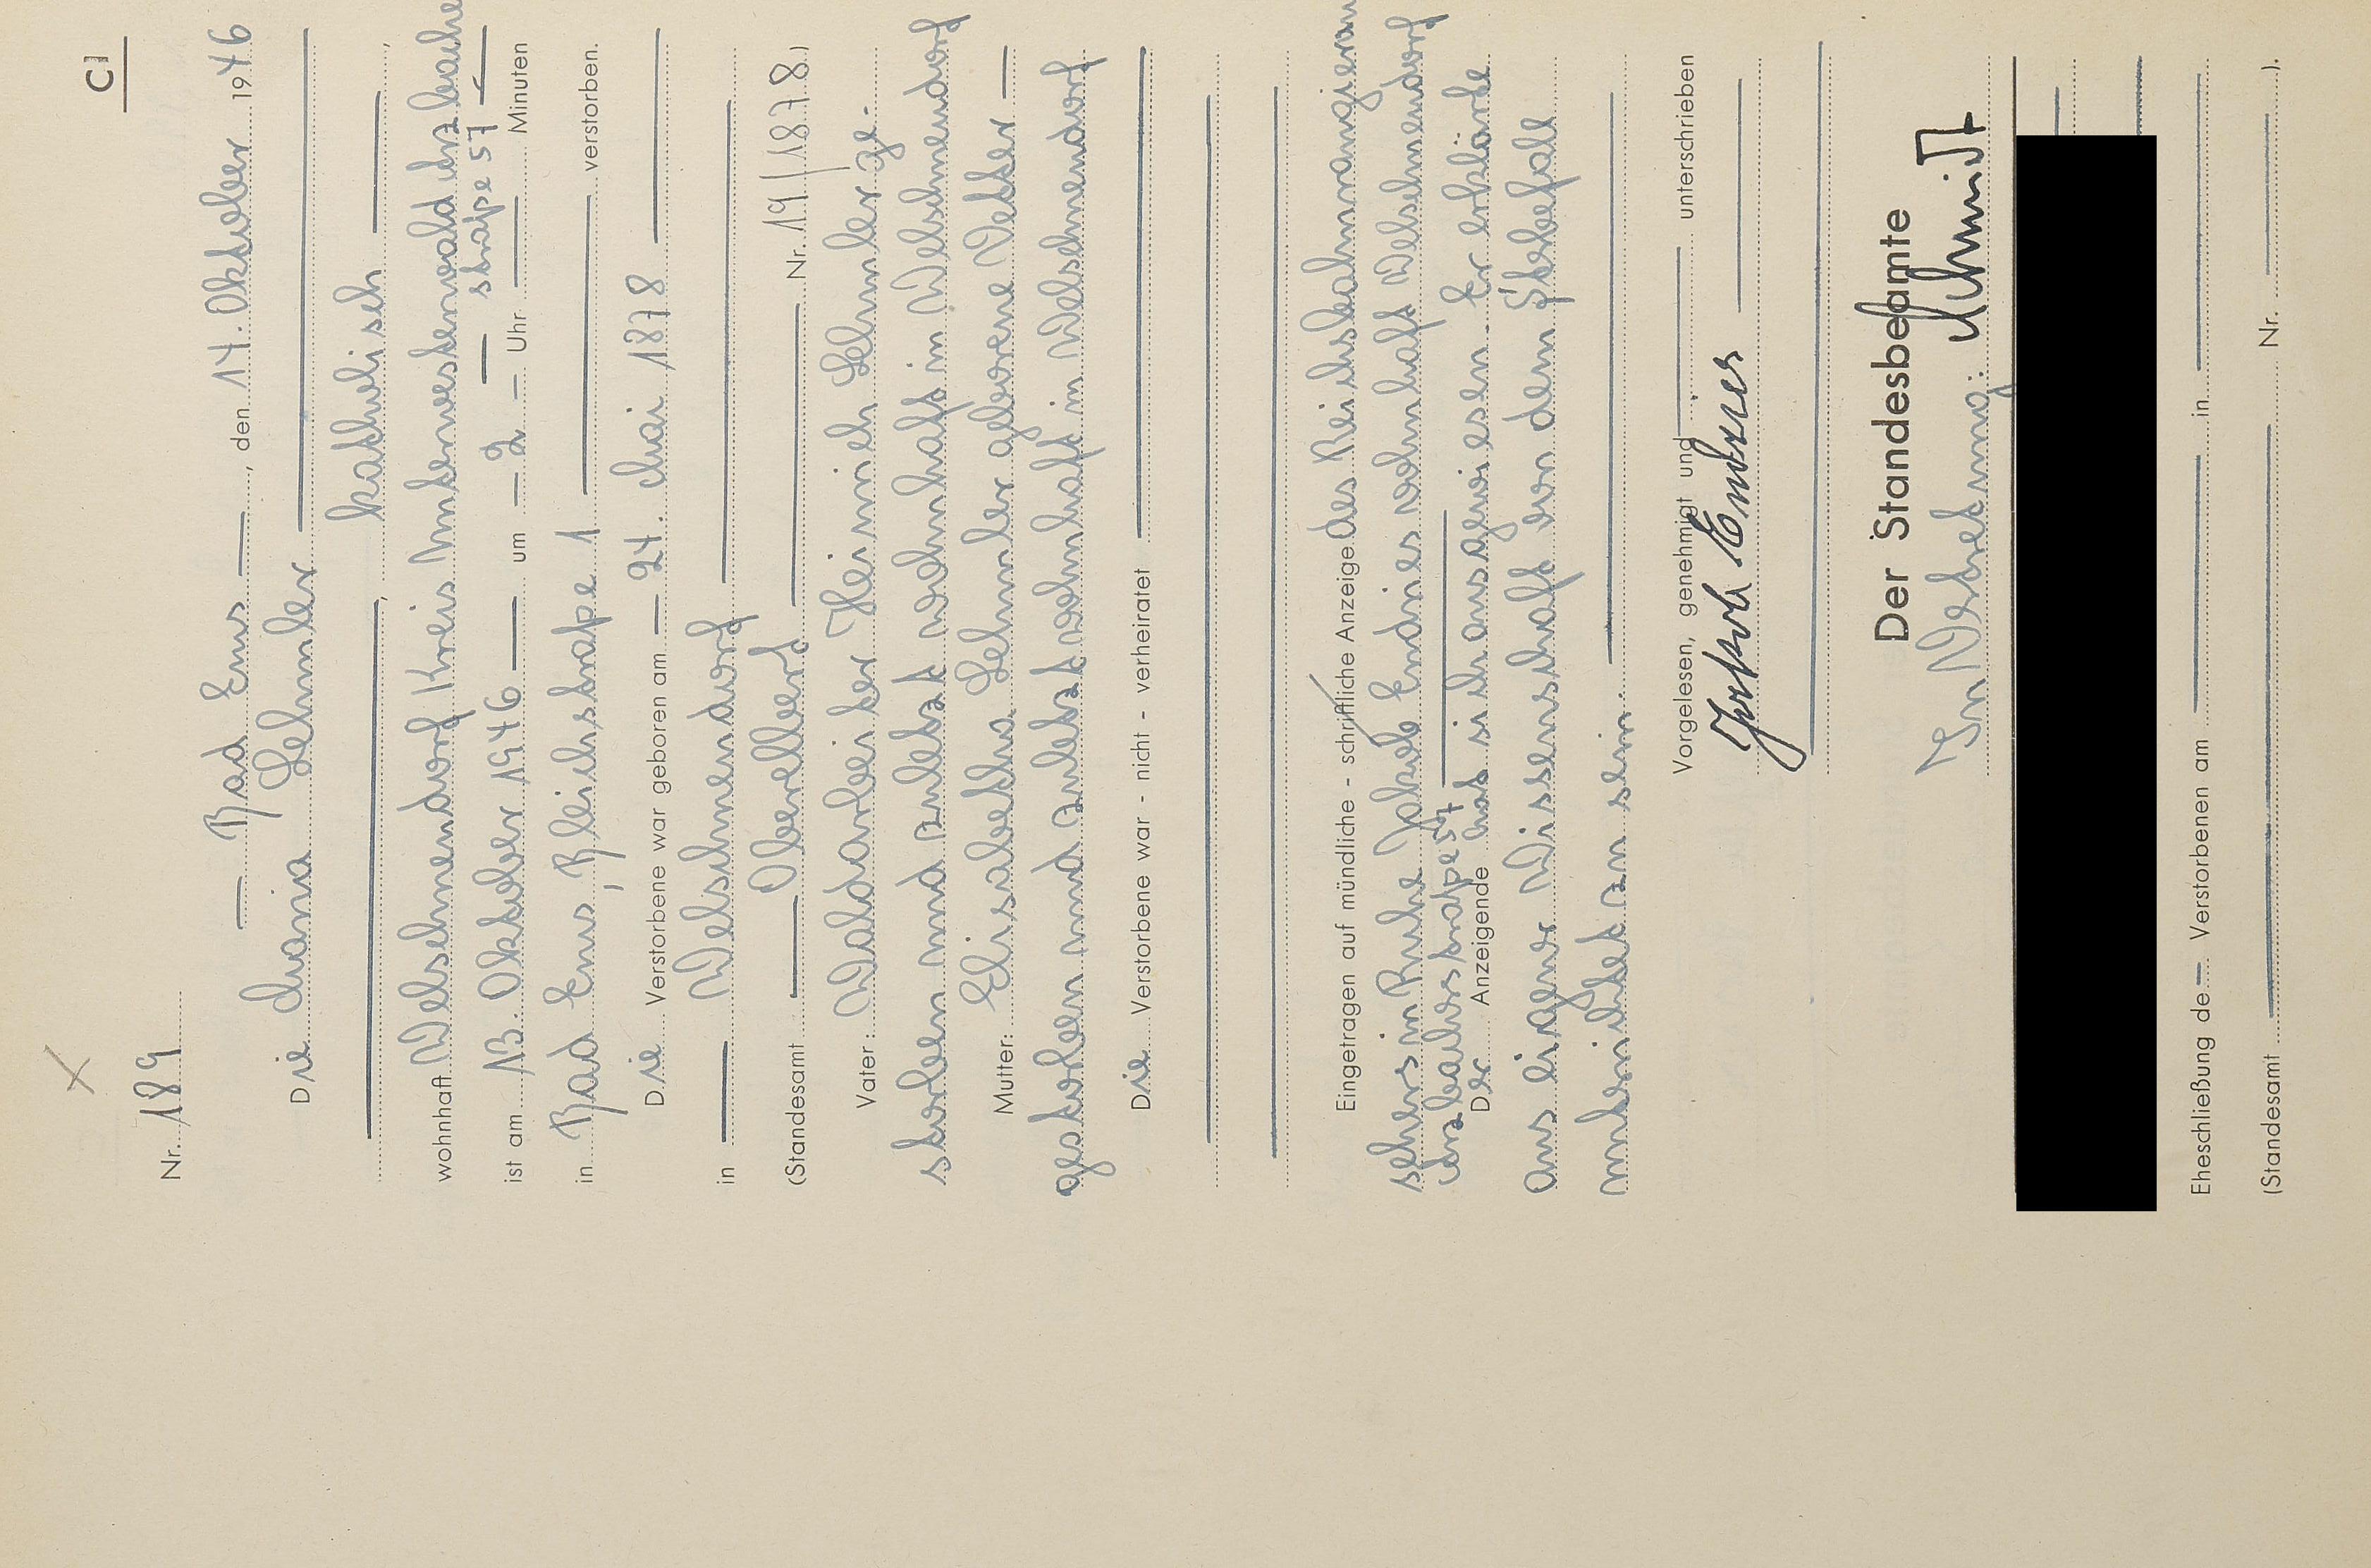 C1
Nr. 189
Bad Ems, den 14. Oktober 1946
Die Maria Lehmler
katholisch,
wohnhaft Welschneudorf Kreis Unterwesterwald Arzbacher
straße 57
ist am 13. Oktober 1946 um 2 Uhr Minuten
in Bad Ems, Bleichstraße 1 verstorben.
Die Verstorbene war geboren am 24. Mai 1878
in Welschneudorf
(Standesamt Oberelbert Nr. 19/1878.)
Vater: Waldarbeiter Heinrich Lehmler ge-
storben und zuletzt wohnhaft in Welschneudorf
Mutter: Elisabetha Lehmler geborene Vetter
gestorben und zuletzt wohnhaft in Welschneudorf
Die Verstorbene war - nicht - verheiratet
Eingetragen auf mündliche - schriftliche Anzeige des Reichsbahnrangierauf
sehers in Ruhe Jakob Endries wohnhaft Welschneudorf
Arzbacherstraße 57
Der Anzeigende hat sich ausgewiesen. Er erklärte
aus eigener Wissenschaft von dem Sterbefall
unterrichtet zu sein.
Vorgelesen, genehmigt und unterschrieben
Jakob Endries
Der Standesbeamte
In Vertretung: Schmidt
Eheschließung de Verstorbenen am in
(Standesamt Nr. ).